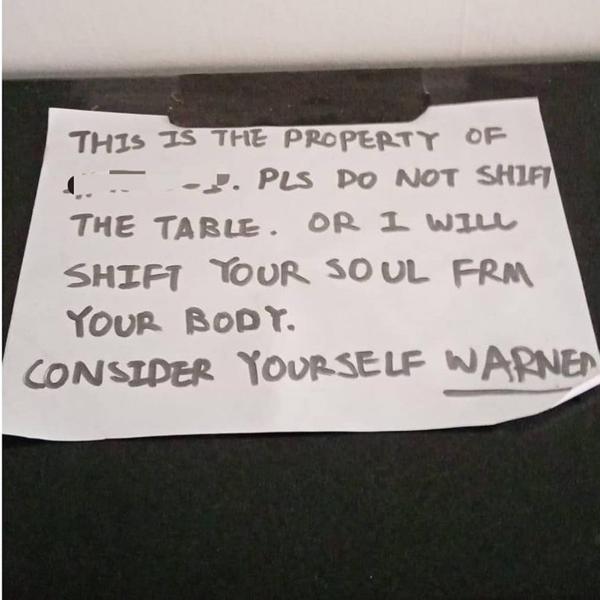 THIS IS THE PROPERTY OF
. PLS DO NOT SHIFT
THE TABLE. OR I WILL
SHIFT YOUR SOUL FRM
YOUR BODY.
CONSIDER YOURSELF WARNED